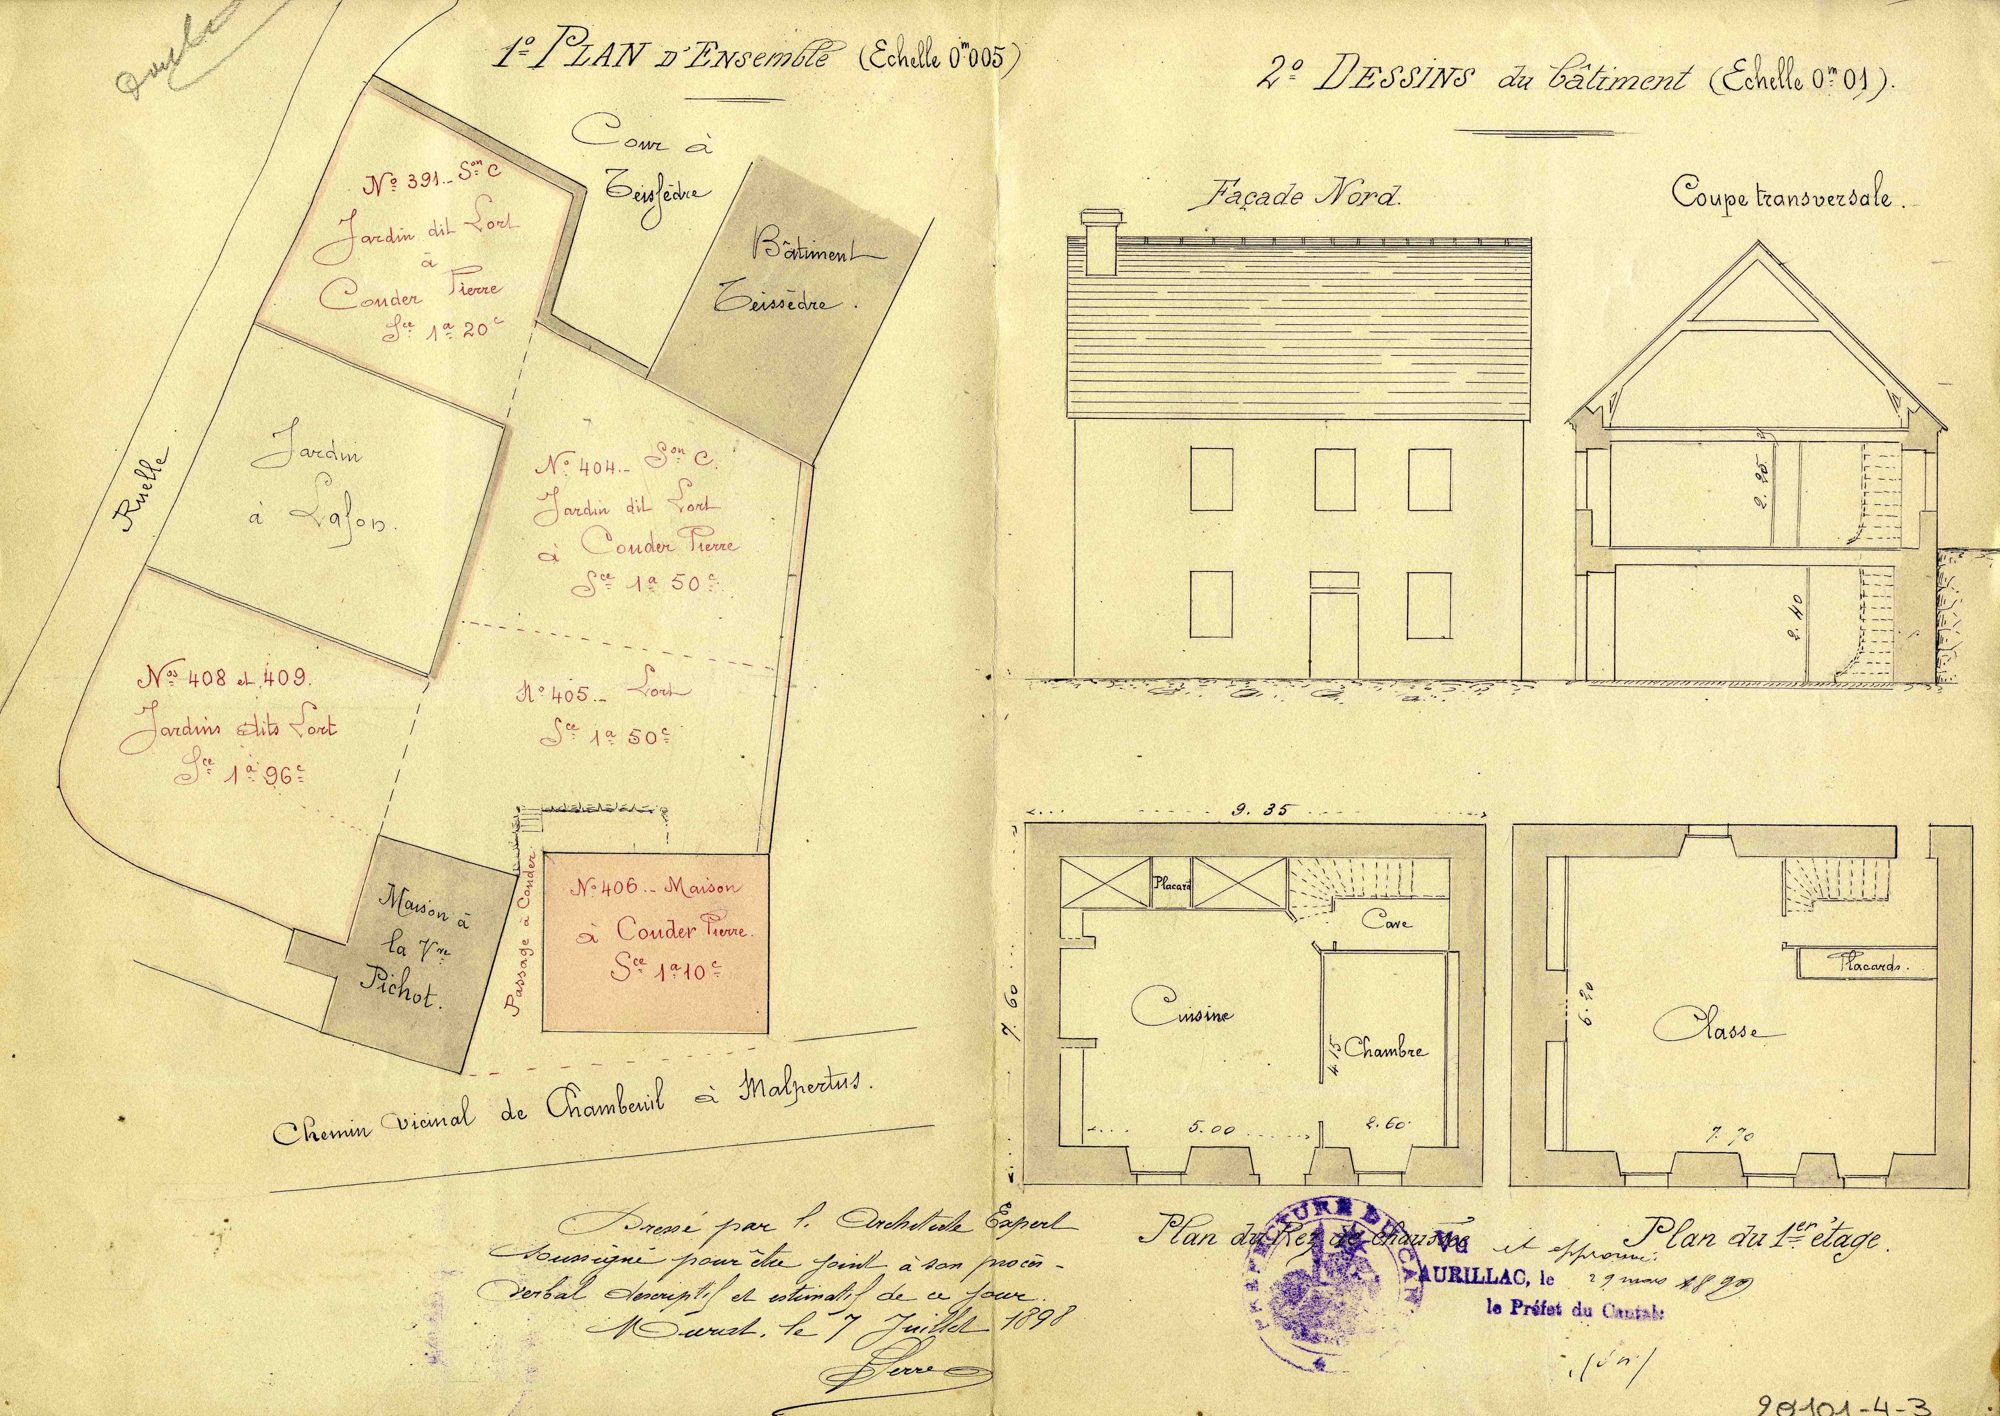 Double
1º PLAN D'ENSEMBLE (Echelle 0m005)
Cour à
Teissèdre
Bâtiment
Teissèdre.
Nº 391 _ Son C
Jardin dit Lort
à
Couder Pierre
Sce 1a 20c
Ruelle
Jardin
à Lafon.
Nº 404 _ Son C.
Jardin dit Lort
à Couder Pierre
Sce 1a 50c
Nos 408 et 409.
Jardins dits Lort
Sce 1a 96c
Nº 405 _ Lort
Sce 1a 50c
Maison à
la Vve
Pichot.
Passage à Couder
Nº 406 _ Maison
à Couder Pierre.
Sce 1a 10c
Chemin vicinal de Chambeuil à Malpertus.
Dressé par l'Architecte Expert
soussigné pour être joint à son procès-
verbal descriptif et estimatif de ce jour.
Murat, le 7 Juillet 1898
Serre
2º DESSINS du bâtiment (Echelle 0m01).
Façade Nord.
Coupe transversale.
2.95
2.40
9.35
7.60
Placard
Cave
Cuisine
Chambre
4.15
5.00
2.60
Plan du Rez de chaussée
Placards.
Classe
6.20
7.70
Plan du 1er étage.
PREFECTURE DU CANTAL
Vu et approuvé:
AURILLAC, le 29 mars 1899
le Préfet du Cantal:
90101-4-3